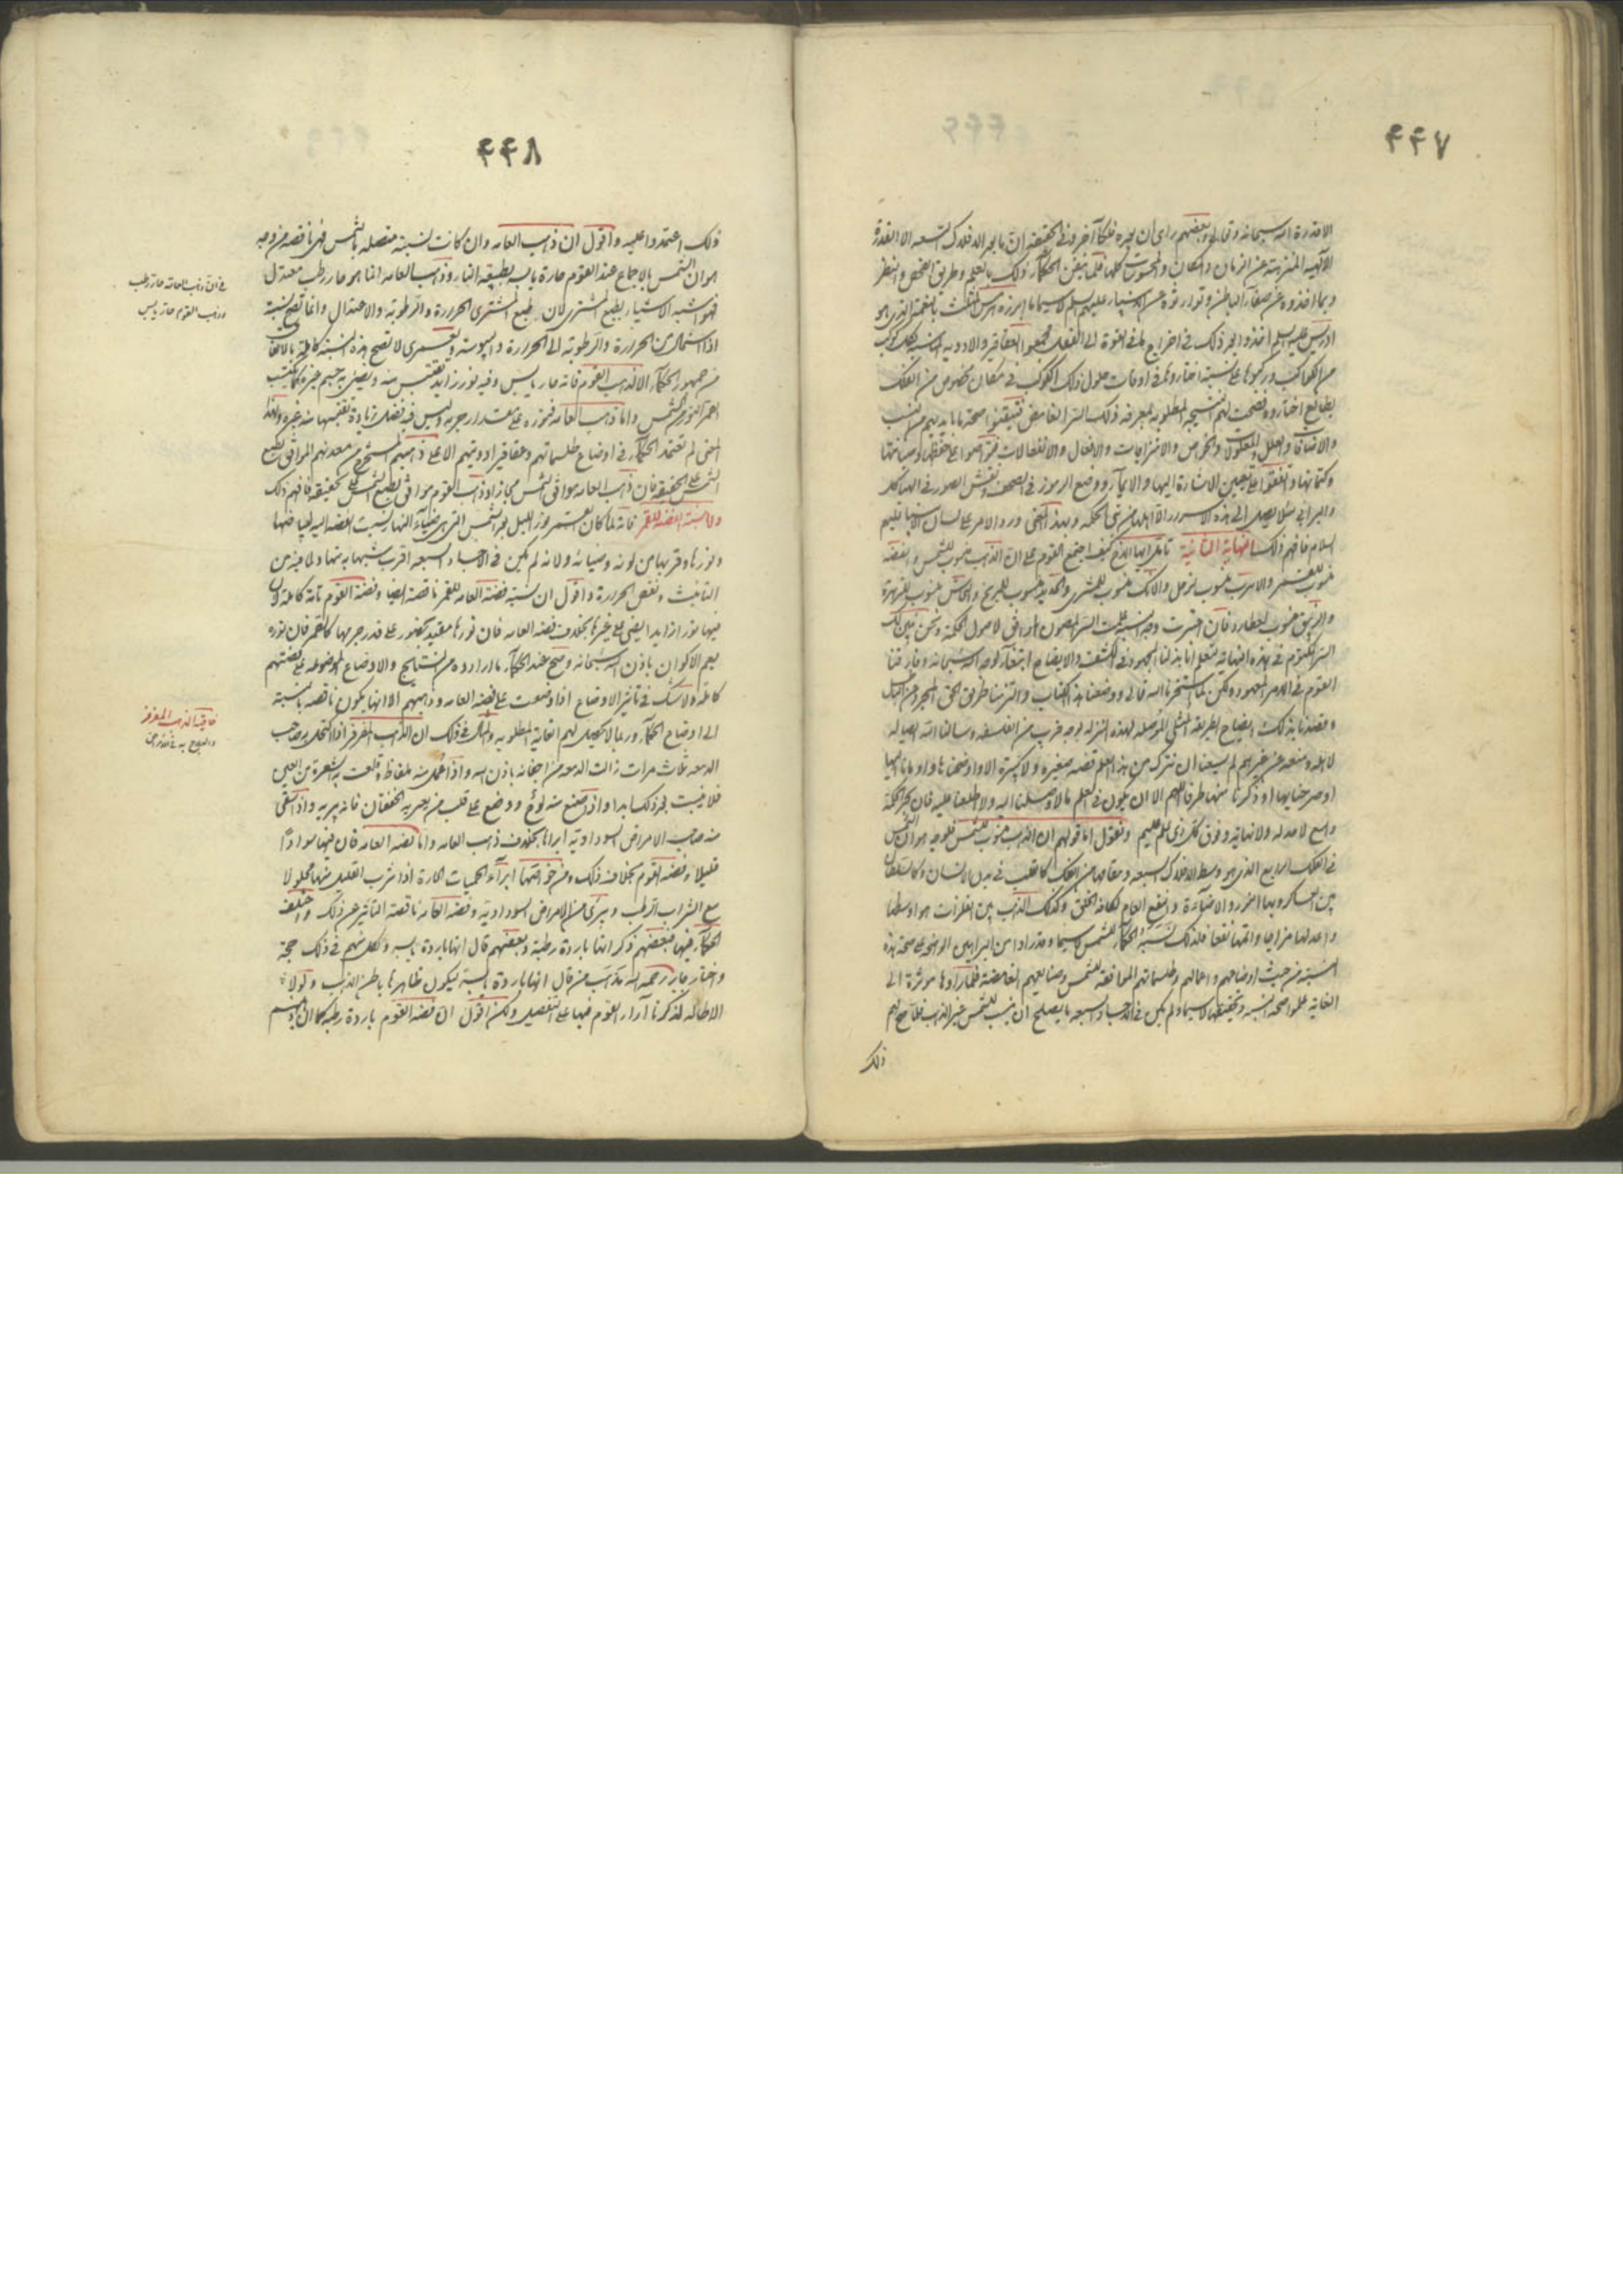 ٤٤٧
الا قدرة الله سبحانه وتعالى وبعضهم رأى ان بعده فلكا آخر وفى الحقيقة ان ما بعد الافلاك التسعة الا القدرة
الالهية المنزهة عن الزمان والمكان والمحسوسات كلها فلما تيقن الحكماء ذلك بالعلم وطريق الفحص والنظر
وبما اخذوه عن صفاء الباطن وتوارثوه عن الانبياء عليهم السلم لا سيما ما ابرزه هرمس المثلث بالنعمة الذى هو
ادريس عليه السلم اخذوا بعد ذلك فى اخراج ما فى القوة الى الفعل فجمعوا العقاقير والادوية المنسوبة لكل كوكب
من الكواكب وركبوها على نسبة اختاروها فى اوقات حلول ذلك الكوكب فى مكان مخصوص من الفلك
بطالع اختاروه فصحت لهم النتيجة المطلوبة بمعرفة ذلك السر الغامض فتيقنوا صحة ما بايديهم من النسب
والاضافات والعلل والمعلولات والخواص والامتزاجات والافعال والانفعالات فتواصوا على حفظها وصيانتها
وكتمانها واتفقوا على تعيين الاشارة اليها والايماء ووضع الرموز فى الصحف ونقش الصور فى الهياكل
والبرابى لئلا يصل الى هذه الاسرار الا اهلها من بنى الحكمة وبهذا المعنى ورد الامر على لسان الانبيا عليهم
السلام فافهم ذلك النهاية الثانية تامل ايها الاخ كيف اجتمع القوم على ان الذهب منسوب للشمس والفضة
منسوب للقمر والاسرب منسوب لزحل والآنك منسوب للمشترى والحديد منسوب للمريخ والنحاس منسوب للزهرة
والزيبق منسوب لعطارد فان افسرت وجه النسبة علمت السر المصون الموافق لاصول الحكمة ونحن نبين لك
السر المكتوم فى هذه النهاية لتعلم انا بذلنا المجهود فى الكشف والايضاح ابتغاء لوجه الله سبحانه وفارقنا
القوم فى الامر المعهود ولكن لما استخرنا الله تعالى ووضعنا هذا الكتاب والتزمنا طريق الحق المجرد عن الباطل
وقصدنا بذلك ايضاح الطريقة المثلى الموصلة لهذه المنزلة لوجه قرب من الفلسفة وسالنا الله ايصاله
لاهله ومنعه عن غيرهم لم يسعنا ان نترك من هذا العلم قضية صغيرة ولا كبيرة الا واوضحناها واومانا اليها
او صرحنا بها او ذكرنا منها طرفا اللهم الا ان يكون فى العلم ما لا وصلنا اليه ولا اطلعنا عليه فان بحر الحكمة
واسع لا حد له ولا نهاية وفوق كل ذى علم عليم ونقول اما قولهم ان الذهب منسوب للشمس فلوجه هو ان الشمس
فى الفلك الرابع الذى هو وسط الافلاك السبعة ومقامها من الفلك كالقلب فى بدن الانسان وكالسلطان
بين العساكر وبها النور والاضاءة والنفع العام لكافة الخلق وكذلك الذهب بين الفلزات هو اوسطها
واعدلها مزاجا واتمها نفعا فلذلك نسبه الحكماء للشمس لا سيما وقد راوا من البراهين الواضحة على صحة هذه
النسبة من حيث اوضاعهم واعمالهم وطلسماتهم الموافقة للشمس وصنايعهم الغامضة فلما راوها موثرة الى
الغاية علموا صحة النسبة وحقيقتها لا سيما ولم يكن فى الاجساد السبعة ما يصلح ان ينسب للشمس غير الذهب فلما صح لهم
ذلك
٤٤٨
ذلك اعتمدوا عليه واقول ان ذهب العامة وان كانت نسبته متصلة بالشمس فهى ناقصة من وجه
هو ان الشمس بالاجماع عند القوم حارة يابسة بطبيعة النار وذهب العامة انما هو حار رطب معتدل
فهو اشبه الاشياء بطبع المشترى لان طبع المشترى الحرارة والرطوبة والاعتدال وانما تصح نسبته
اذا استحال من الحرارة والرطوبة الى الحرارة واليبوسة ولعمرى لا تصح هذه النسبة كاملة بالاتفاق
من جمهور الحكماء الا لذهب القوم فانه حار يابس وفيه نور زايد يقتبس منه ويضىء به جسم غيره كما يقتبس
القمر النور من الشمس واما ذهب العامة فنوره على مقدار جرمه وليس فيه فضل زيادة يقتبسها منه غيره ولهذا
المعنى لم تعتمد الحكماء فى اوضاع طلسماتهم وعقاقير ادويتهم الا على ذهبهم المستخرج من معدنهم الموافق لطبع
الشمس على الحقيقة فان ذهب العامة موافق للشمس مجازا وذهب القوم موافق لطبع الشمس على الحقيقة فافهم ذلك
واما نسبة الفضة للقمر فانه لما كان القمر نور الليل بعد الشمس التى هى ضياء النهار نسبت الفضة اليه لبياضها
ونورها وقربها من لونه وضيائه ولانه لم يكن فى الاجساد السبعة اقرب شبها به منها ولما فيه من
التانيث ونقص الحرارة واقول ان نسبة فضة العامة للقمر ناقصة ايضا وفضة القوم تامة كاملة لان
فيها نورا زايدا يضىء على غيرها بخلاف فضة العامة فان نورها مقيد محصور على قدر جرمها كالقمر فان نوره
يعم الاكوان باذن الله سبحانه وصح عند الحكماء ما ارادوه من النتايج والاوضاع الموضوعة على فضتهم
كاملة ولا شك فى تاثير الاوضاع اذا وضعت على فضة العامة وذهبهم الا انها يكون ناقصة بالنسبة
الى اوضاع الحكماء وربما لا تحصل لهم الغاية المطلوبة والمثال فى ذلك ان الذهب المفرفر اذا اكتحل به صاحب
الدمعة ثلاث مرات زالت الدمعة من اجفانه باذن الله واذا عمل منه ملقاط وقلعت به الشعرة من العين
فلا تنبت بعد ذلك ابدا واذا صنع منه لوح ووضع على قلب من يعتريه الخفقان فانه يبريه واذا سقى
منه صاحب الامراض السوداوية ابراها بخلاف ذهب العامة واما فضة العامة فان فيها سوادا
قليلا وفضة القوم بخلاف ذلك ومن خواصها ابراء الحميات الحارة اذا شرب القليل منها محلولا
مع الشراب الرطب ويبرى من الامراض السوداوية وفضة العامة ناقصة التاثير عن ذلك واختلف
الحكماء فيها فبعضهم ذكر انها باردة رطبة وبعضهم قال انها باردة يابسة ولكل منهم فى ذلك حجة
واختار جابر رحمه الله مذهب من قال انها باردة يابسة ليكون ظاهرها باطن الذهب ولولا
الاطالة لذكرنا آراء القوم فيها على التفصيل ولكن اقول ان فضة القوم باردة رطبة كما ان ذهبهم
فى ان ذهب العامة حار رطب
وذهب القوم حار يابس
خاصية الذهب المفرفر